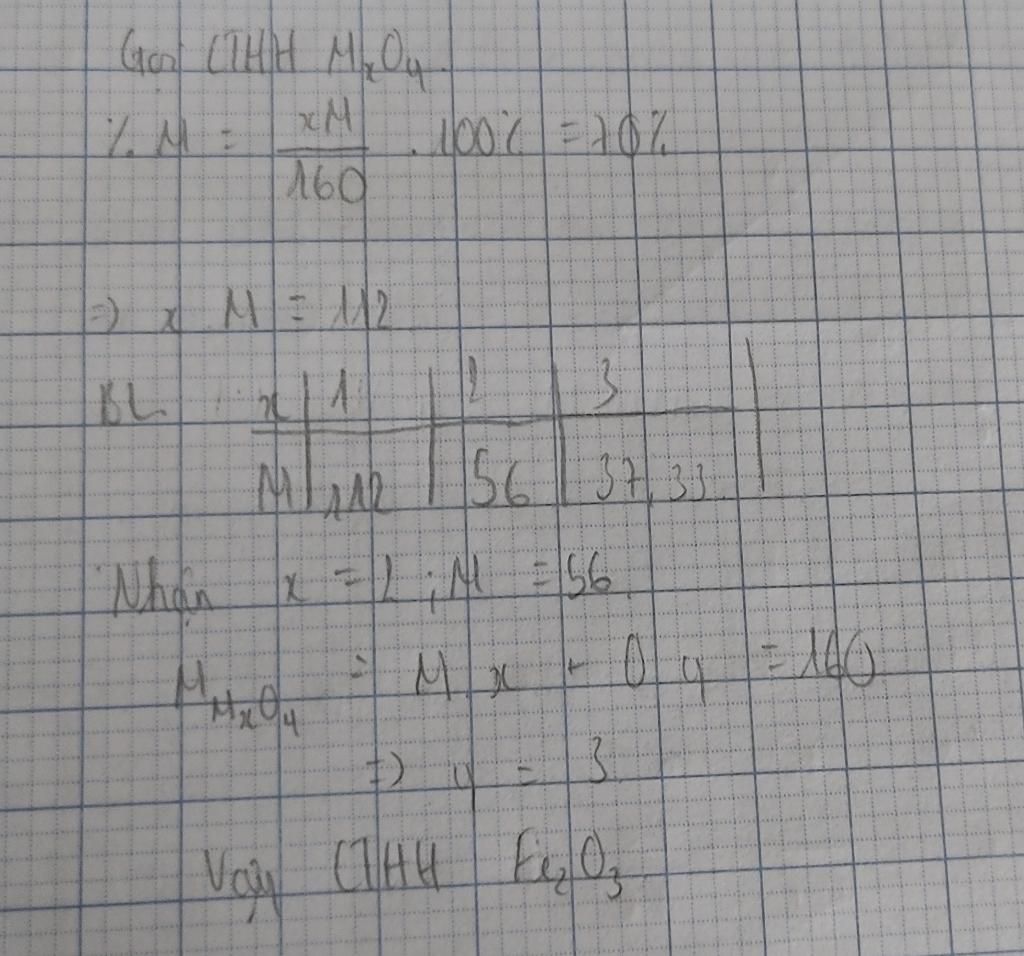 Gọi CTHH MxOy.
% M = xM/160 . 100% = 70%
=> x M = 112
BL x 1 2 3
M 112 56 37,33
Nhận x = 2 ; M = 56
M MxOy = M x + O y = 160
=> y = 3
Vậy CTHH Fe2O3